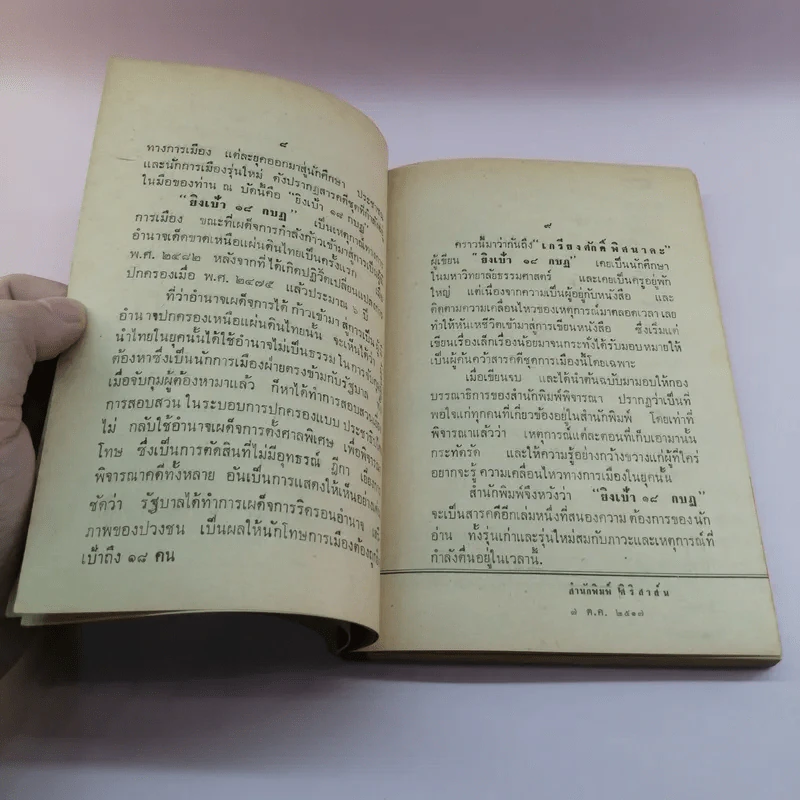 ๘
ทางการเมือง แต่ละยุคออกมาสู่นักศึกษา ประชาชน
และนักการเมืองรุ่นใหม่ ดังปรากฏสารคดีชุดที่กำลังอยู่
ในมือของท่าน ณ บัดนี้คือ “ยิงเป้า ๑๘ กบฏ”
“ยิงเป้า ๑๘ กบฏ” เป็นเหตุการณ์ทางการ
การเมือง ขณะที่เผด็จการกำลังก้าวเข้ามาสู่การเป็นผู้
อำนาจเด็ดขาดเหนือแผ่นดินไทยเป็นครั้งแรก เมื่อ
พ.ศ. ๒๔๘๒ หลังจากที่ได้เกิดปฏิวัติเปลี่ยนแปลงการ
ปกครองเมื่อ พ.ศ. ๒๔๗๕ แล้วประมาณ ๖ ปี
ที่ว่าอำนาจเผด็จการได้ก้าวเข้ามาสู่การเป็น
อำนาจปกครองเหนือแผ่นดินไทยนั้น จะเห็นได้ว่า
นำไทยในยุคนั้นได้ใช้อำนาจไม่เป็นธรรมในการจับกุม
ต้องหาซึ่งเป็นนักการเมืองฝ่ายตรงข้ามกับรัฐบาล
เมื่อจับกุมผู้ต้องหามาแล้ว ก็หาได้ทำการสอบสวน
การสอบสวนในระบอบการปกครองแบบ ประชาธิปไตย
ไม่ กลับใช้อำนาจเผด็จการตั้งศาลพิเศษ เพื่อพิจารณา
โทษ ซึ่งเป็นการตัดสินที่ไม่มีอุทธรณ์ ฎีกา เยี่ยงการ
พิจารณาคดีทั้งหลาย อันเป็นการแสดงให้เห็นอย่าง
ชัดว่า รัฐบาลได้ทำการเผด็จการริดรอนอำนาจ
ภาพของปวงชน เป็นผลให้นักโทษการเมืองต้องถูกยิง
เป้าถึง ๑๘ คน
๙
คราวนี้มาว่ากันถึง “เกรียงศักดิ์ พิศนาคะ”
ผู้เขียน “ยิงเป้า ๑๘ กบฏ” เคยเป็นนักศึกษา
ในมหาวิทยาลัยธรรมศาสตร์ และเคยเป็นครูอยู่พัก
ใหญ่ แต่เนื่องจากความเป็นผู้อยู่กับหนังสือ และ
ติดตามความเคลื่อนไหวของเหตุการณ์มาตลอดเวลา เลย
ทำให้หันเหชีวิตเข้ามาสู่การเขียนหนังสือ ซึ่งเริ่มแต่
เขียนเรื่องเล็กเรื่องน้อยมาจนกระทั่งได้รับมอบหมายให้
เป็นผู้ค้นคว้าสารคดีชุดการเมืองนี้โดยเฉพาะ
เมื่อเขียนจบ และได้นำต้นฉบับมามอบให้กอง
บรรณาธิการของสำนักพิมพ์พิจารณา ปรากฏว่าเป็นที่
พอใจแก่ทุกคนที่เกี่ยวข้องอยู่ในสำนักพิมพ์ โดยเท่าที่
พิจารณาแล้วว่า เหตุการณ์แต่ละตอนที่เก็บเอามานั้น
กระทัดรัด และให้ความรู้อย่างกว้างขวางแก่ผู้ที่ใคร่
อยากจะรู้ ความเคลื่อนไหวทางการเมืองในยุคนั้น
สำนักพิมพ์จึงหวังว่า “ยิงเป้า ๑๘ กบฏ”
จะเป็นสารคดีอีกเล่มหนึ่งที่สนองความ ต้องการของนัก
อ่าน ทั้งรุ่นเก่าและรุ่นใหม่สมกับภาวะและเหตุการณ์ที่
กำลังตื่นอยู่ในเวลานี้.
สำนักพิมพ์ ติริสาส์น
๗ ต.ค. ๒๕๑๗